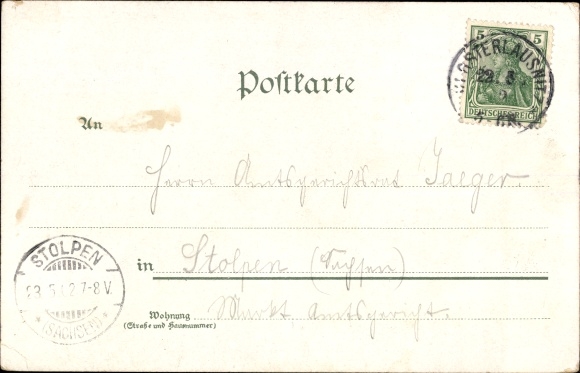 5 5
DEUTSCHES REICH
Postkarte
An
Herrn Amtsgerichtsrat Jaeger.
in Stolpen (Sachsen)
Markt Amtsgericht.
Wohnung
(Straße und Hausnummer)
STOLPEN
7-8 V.
* (SACHSEN) *